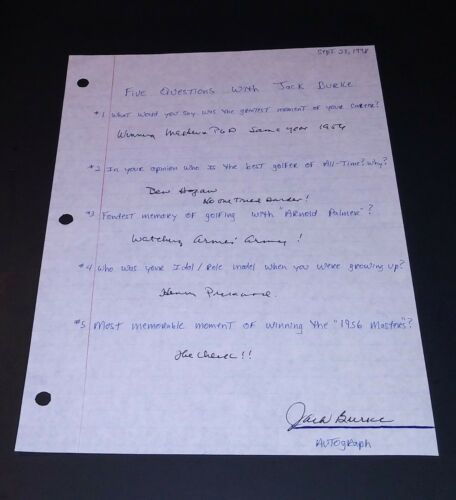 Sept 23, 1998
Five Questions with Jack Burke
#1 What would you say was the greatest moment of your career?
Winning Masters PGA Same year 1956
#2 In your opinion who is the best golfer of All-Time? Why?
Ben Hogan
No one Tried Harder!
#3 Fondest memory of golfing with "Arnold Palmer"?
Watching Arnies' Army!
#4 Who was your Idol/Role model when you were growing up?
Henry
#5 Most memorable moment of winning the "1956 Masters"?
The Check!!
Jack Burke
Autograph